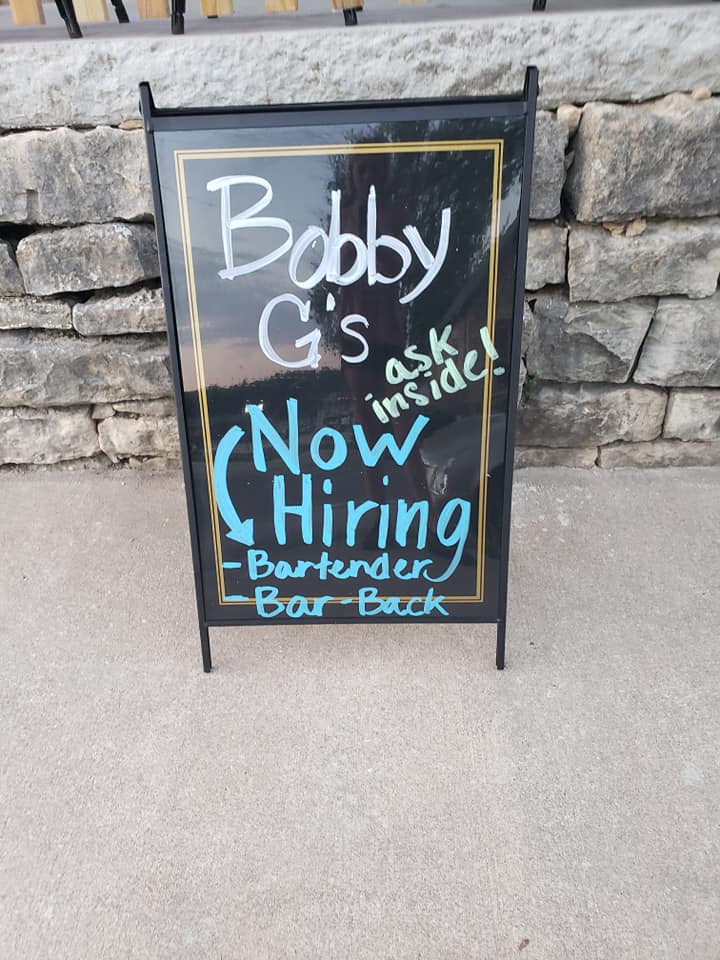 Bobby
G's
ask
inside!
Now
Hiring
- Bartender
- Bar-Back